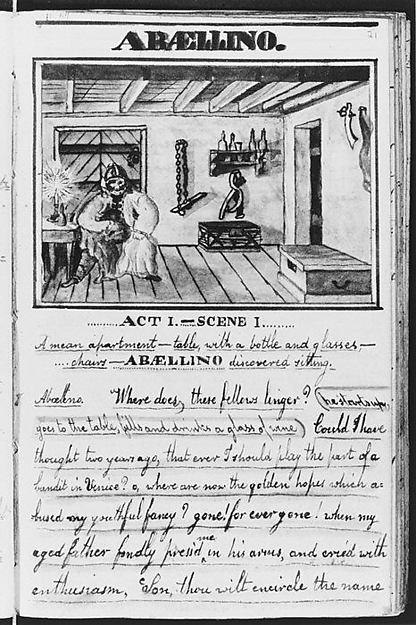 21
ABÆLLINO.
ACT I.—SCENE I.
A mean apartment — table, with a bottle and glasses,—
chairs — ABÆLLINO discovered sitting.
Abællino. Where does, these fellows linger? (he starts up,
goes to the table, fills and drinks a glass of wine) Could I have
thought two years ago, that ever I should play the part of a
bandit in Venice? o, where are now the golden hopes which a=
bused my youthful fancy? gone! for ever gone! when my
aged father fondly press'd me in his arms, and cried with
enthusiasm, Son, thou wilt encircle the name